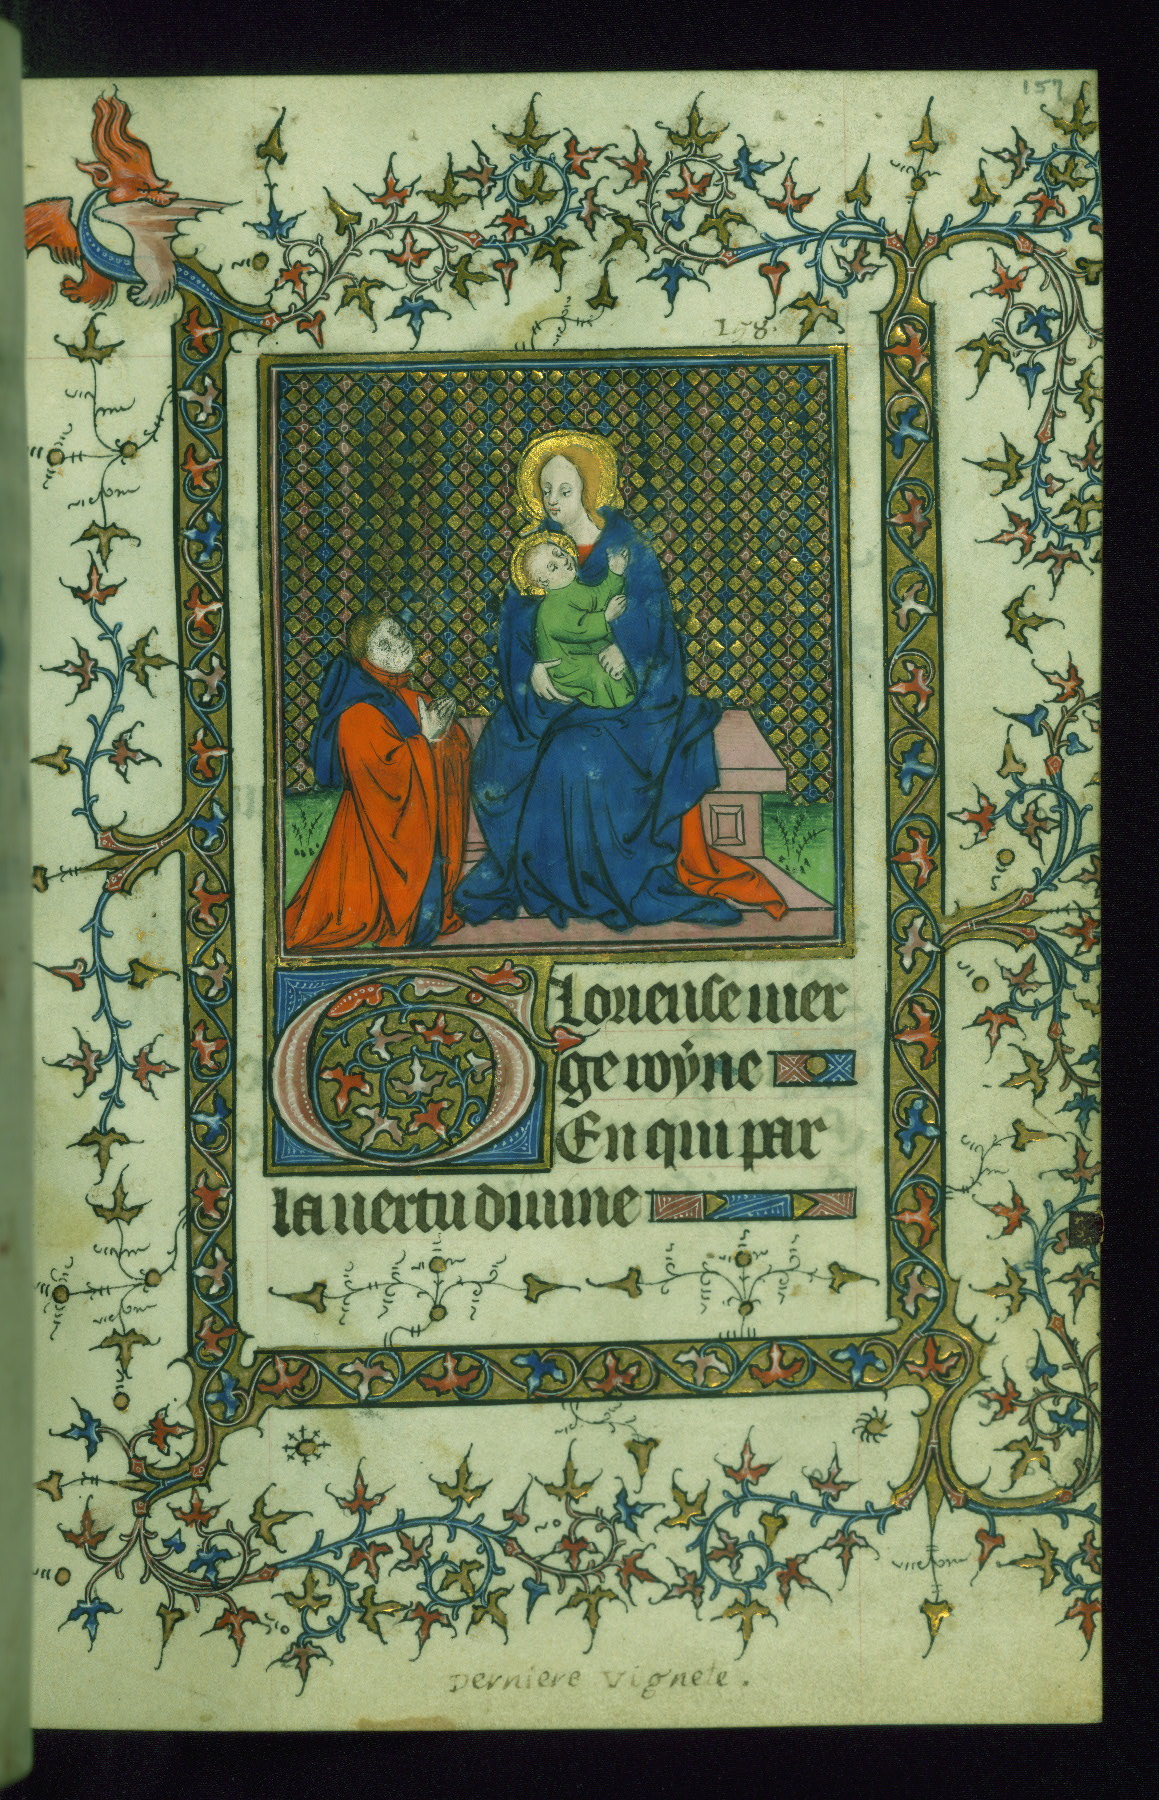 157
158.
Glorieuse vier
ge roÿne
En qui par
la uertu diuine
Derniere vignete.